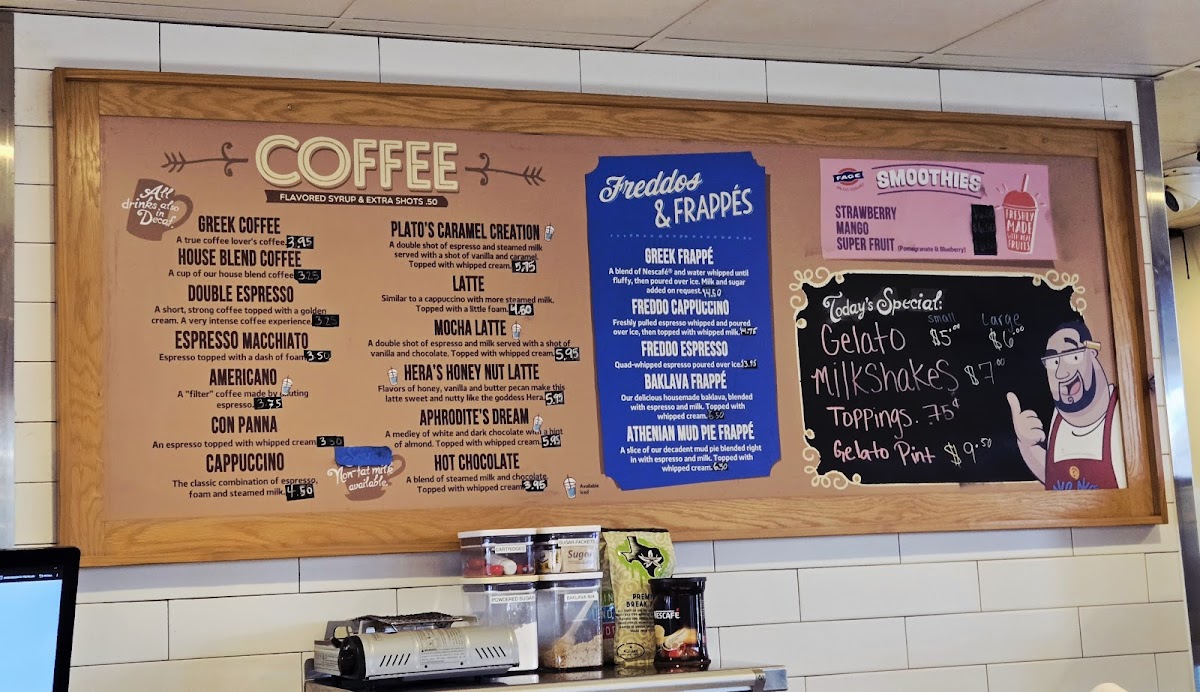 COFFEE
FLAVORED SYRUP & EXTRA SHOTS .50
All
drinks also
in
Decaf.
GREEK COFFEE
A true coffee lover's coffee. 3.95
HOUSE BLEND COFFEE
A cup of our house blend coffee. 3.25
DOUBLE ESPRESSO
A short, strong coffee topped with a golden
cream. A very intense coffee experience. 3.25
ESPRESSO MACCHIATO
Espresso topped with a dash of foam. 3.50
AMERICANO
A "filter" coffee made by
espresso. 3.75
CON PANNA
An espresso topped with whipped cream. 3.50
CAPPUCCINO
The classic combination of espresso,
foam and steamed milk. 4.50
PLATO'S CARAMEL CREATION
A double shot of espresso and steamed milk
served with a shot of vanilla and caramel.
Topped with whipped cream. 5.75
LATTE
Similar to a cappuccino with more steamed milk.
Topped with a little foam. 4.50
MOCHA LATTE
A double shot of espresso and milk served with a shot of
vanilla and chocolate. Topped with whipped cream. 5.95
HERA'S HONEY NUT LATTE
Flavors of honey, vanilla and butter pecan make this
latte sweet and nutty like the goddess Hera. 5.95
APHRODITE'S DREAM
A medley of white and dark chocolate with a hint
of almond. Topped with whipped cream. 5.95
HOT CHOCOLATE
A blend of steamed milk and chocolate.
Topped with whipped cream. 3.95
Non-fat milk
available.
Available
Iced
Freddos
& FRAPPÉS
GREEK FRAPPÉ
A blend of Nescafé® and water whipped until
fluffy, then poured over ice. Milk and sugar
added on request. $4.50
FREDDO CAPPUCCINO
Freshly pulled espresso whipped and poured
over ice, then topped with whipped milk. $4.75
FREDDO ESPRESSO
Quad-whipped espresso poured over ice. $3.95
BAKLAVA FRAPPÉ
Our delicious housemade baklava, blended
with espresso and milk. Topped with
whipped cream. 6.50
ATHENIAN MUD PIE FRAPPÉ
A slice of our decadent mud pie blended right
in with espresso and milk. Topped with
whipped cream. 6.50
FAGE
SMOOTHIES
STRAWBERRY
MANGO
SUPER FRUIT (Pomegranate & Blueberry)
FRESHLY
MADE
WITH REAL
FRUITS
Today's Special:
small large
Gelato $5.00 $6.00
Milkshakes $7.00
Toppings .75¢
Gelato Pint $9.50
CARTRIDGES
SUGAR PACKETS
Sugar
POWDERED SUGAR
BAKLAVA MIX
PREMI
BREAK
NESCAFÉ